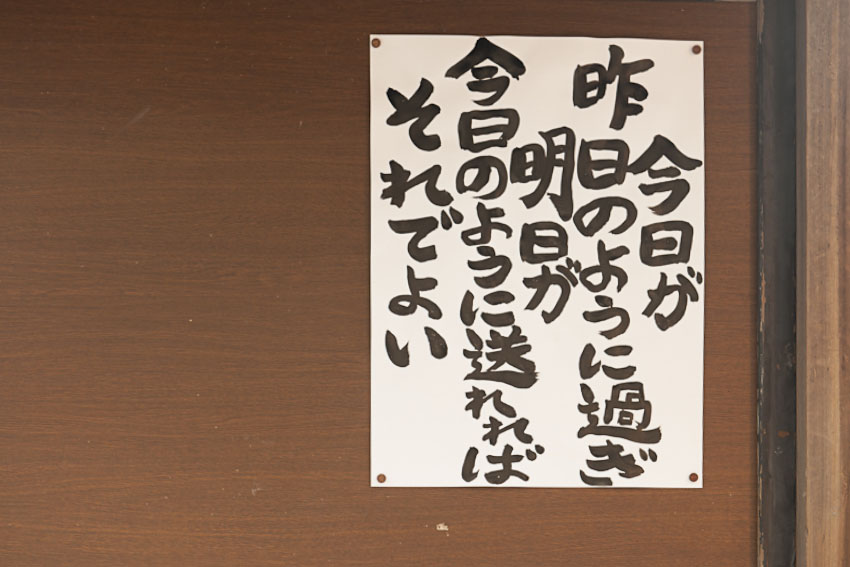 今日が
昨日のように過ぎ
明日が
今日のように送れれば
それでよい